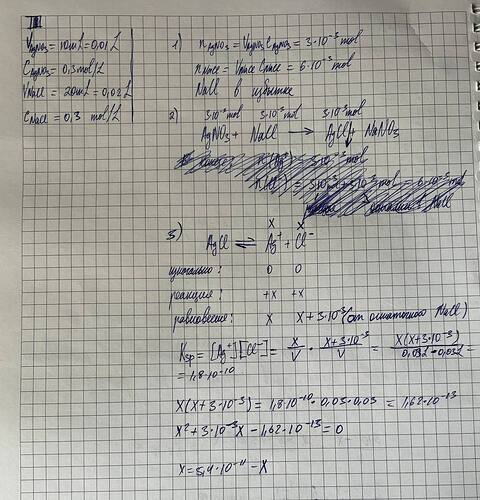 III
V AgNO3 = 10 mL = 0,01 L
C AgNO3 = 0,3 mol/L
V NaCl = 20 mL = 0,02 L
C NaCl = 0,3 mol/L
1) n AgNO3 = V AgNO3 C AgNO3 = 3·10⁻³ mol
n NaCl = V NaCl C NaCl = 6·10⁻³ mol
NaCl в избытке
2) 3·10⁻³ mol 3·10⁻³ mol 3·10⁻³ mol
AgNO3 + NaCl → AgCl↓ + NaNO3
3·10⁻³ mol
3·10⁻³ mol = 6·10⁻³ mol
NaCl
3) x x
AgCl ⇌ Ag⁺ + Cl⁻
изначально: 0 0
реакция: +x +x
равновесие: x x + 3·10⁻³ (от остаточного NaCl)
Ksp = [Ag⁺][Cl⁻] = x/V · x+3·10⁻³/V = x(x+3·10⁻³)/0,03L·0,03L =
= 1,8·10⁻¹⁰
x(x+3·10⁻³) = 1,8·10⁻¹⁰ · 0,03·0,03 = 1,62·10⁻¹³
x² + 3·10⁻³x − 1,62·10⁻¹³ = 0
x = 5,4·10⁻¹¹ − x